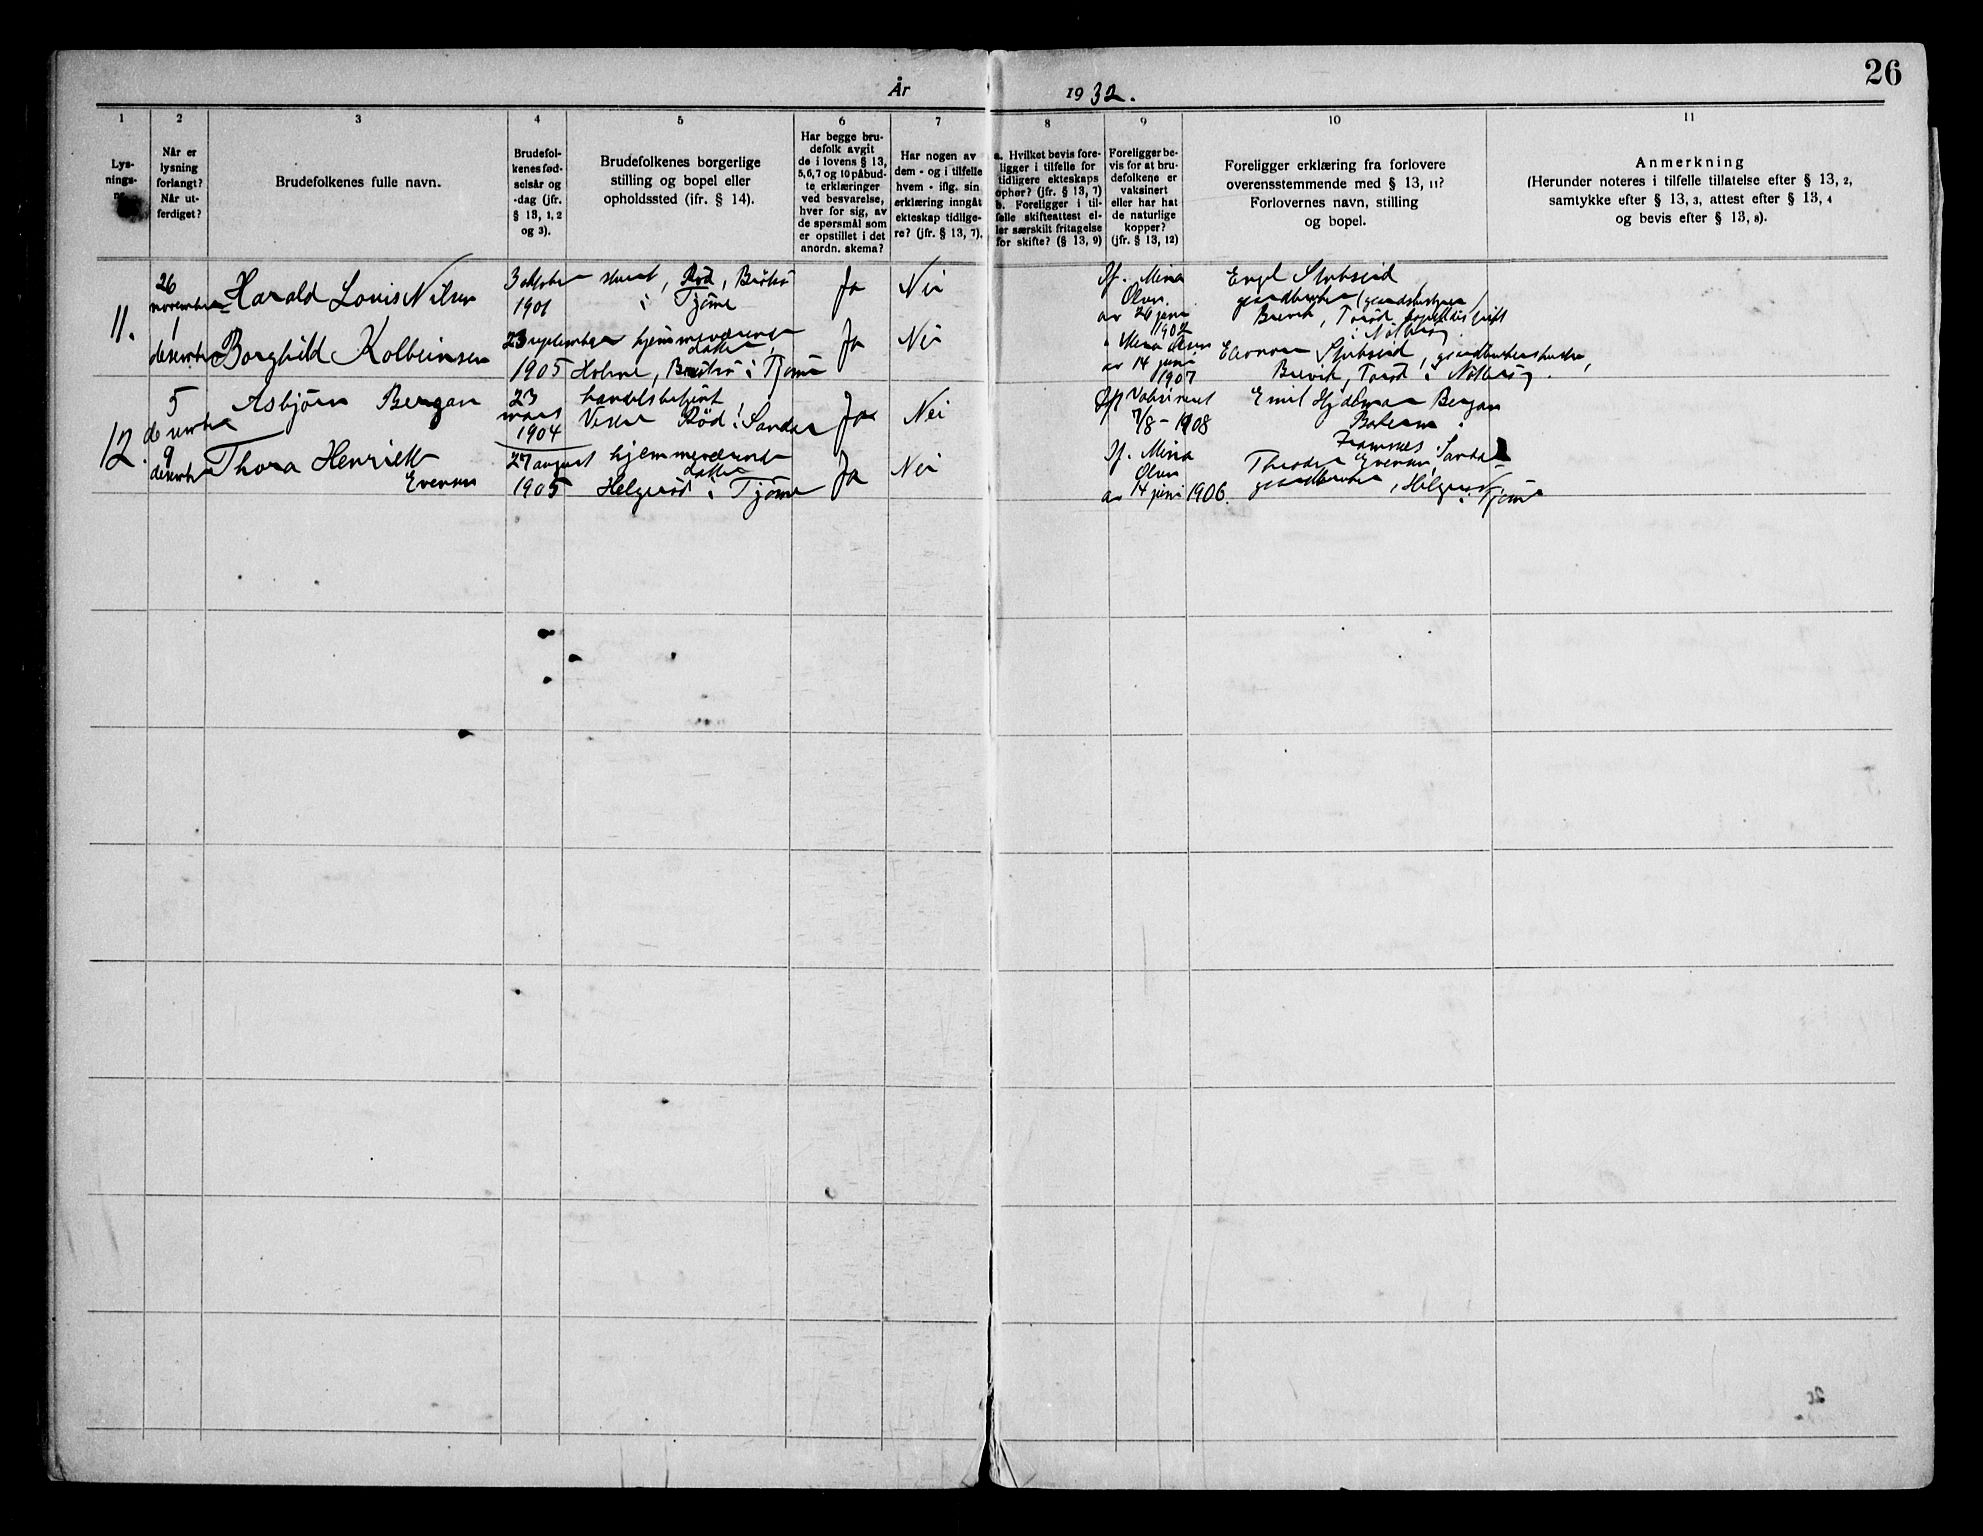 26
År 1932.
1 2 3 4 5 6 7 8 9 10 11
Lys-
nings-
Når er
lysning
forlangt?
Når ut-
ferdiget?
Brudefolkenes fulle navn.
Brudefol-
kenes fød-
selsår og
-dag (jfr.
§ 13, 1, 2
og 3).
Brudefolkenes borgerlige
stilling og bopel eller
opholdssted (jfr. § 14).
Har begge bru-
defolk avgit
de i lovens § 13,
5, 6, 7 og 10 påbud-
te erklæringer
ved besvarelse,
hver for sig, av
de spørsmål som
er opstillet i det
anordn. skema?
Har nogen av
dem - og i tilfelle
hvem - iflg. sin
erklæring inngåt
ekteskap tidlige-
re? (jfr. § 13, 7).
a. Hvilket bevis fore-
ligger i tilfelle for
tidligere ekteskaps
ophør? (jfr. § 13, 7)
b. Foreligger i til-
felle skifteattest el-
ler særskilt fritagelse
for skifte? (§ 13, 9)
Foreligger be-
vis for at bru-
defolkene er
vaksinert
eller har hat
de naturlige
kopper?
(jfr. § 13, 12)
Foreligger erklæring fra forlovere
overensstemmende med § 13, 11?
Forlovernes navn, stilling
og bopel.
Anmerkning
(Herunder noteres i tilfelle tillatelse efter § 13, 2,
samtykke efter § 13, 3, attest efter § 13, 4
og bevis efter § 13, 8).
11.
26
november
1
desember
Harald Louis Nilsen
3 oktober
1901
Rød, Brøtsø
i Tjøme
Ja
Nei
Af. Mina
Olsen
av 24 juni
1902
Engl
gaardbruker
Brevik, Torød
i Nøtterøy
Borghild Kolbeinsen
23 september
1905
hjemmeværende
datter
Holme, Brøtsø i Tjøme
Ja
Nei
Mina Olsen
av 14 juni
1907
Eleonora
Brevik, Torød i Nøtterøy.
12.
5
desember
9
desember
Asbjørn Bergan
23
mars
1904
handelsbetjent
Rød i Sandar
Ja
Nei
Vaksinert
7/8-1908
Emil Hjalmar Bergan
Framnes i Sandar
Thora Henriette
Evensen
27 august
1905
hjemmeværende
datter
Helgerød i Tjøme
Ja
Nei
Af. Mina
Olsen
av 14 juni 1906.
Theodor Evensen
gaardbruker, Helgerød
i Tjøme